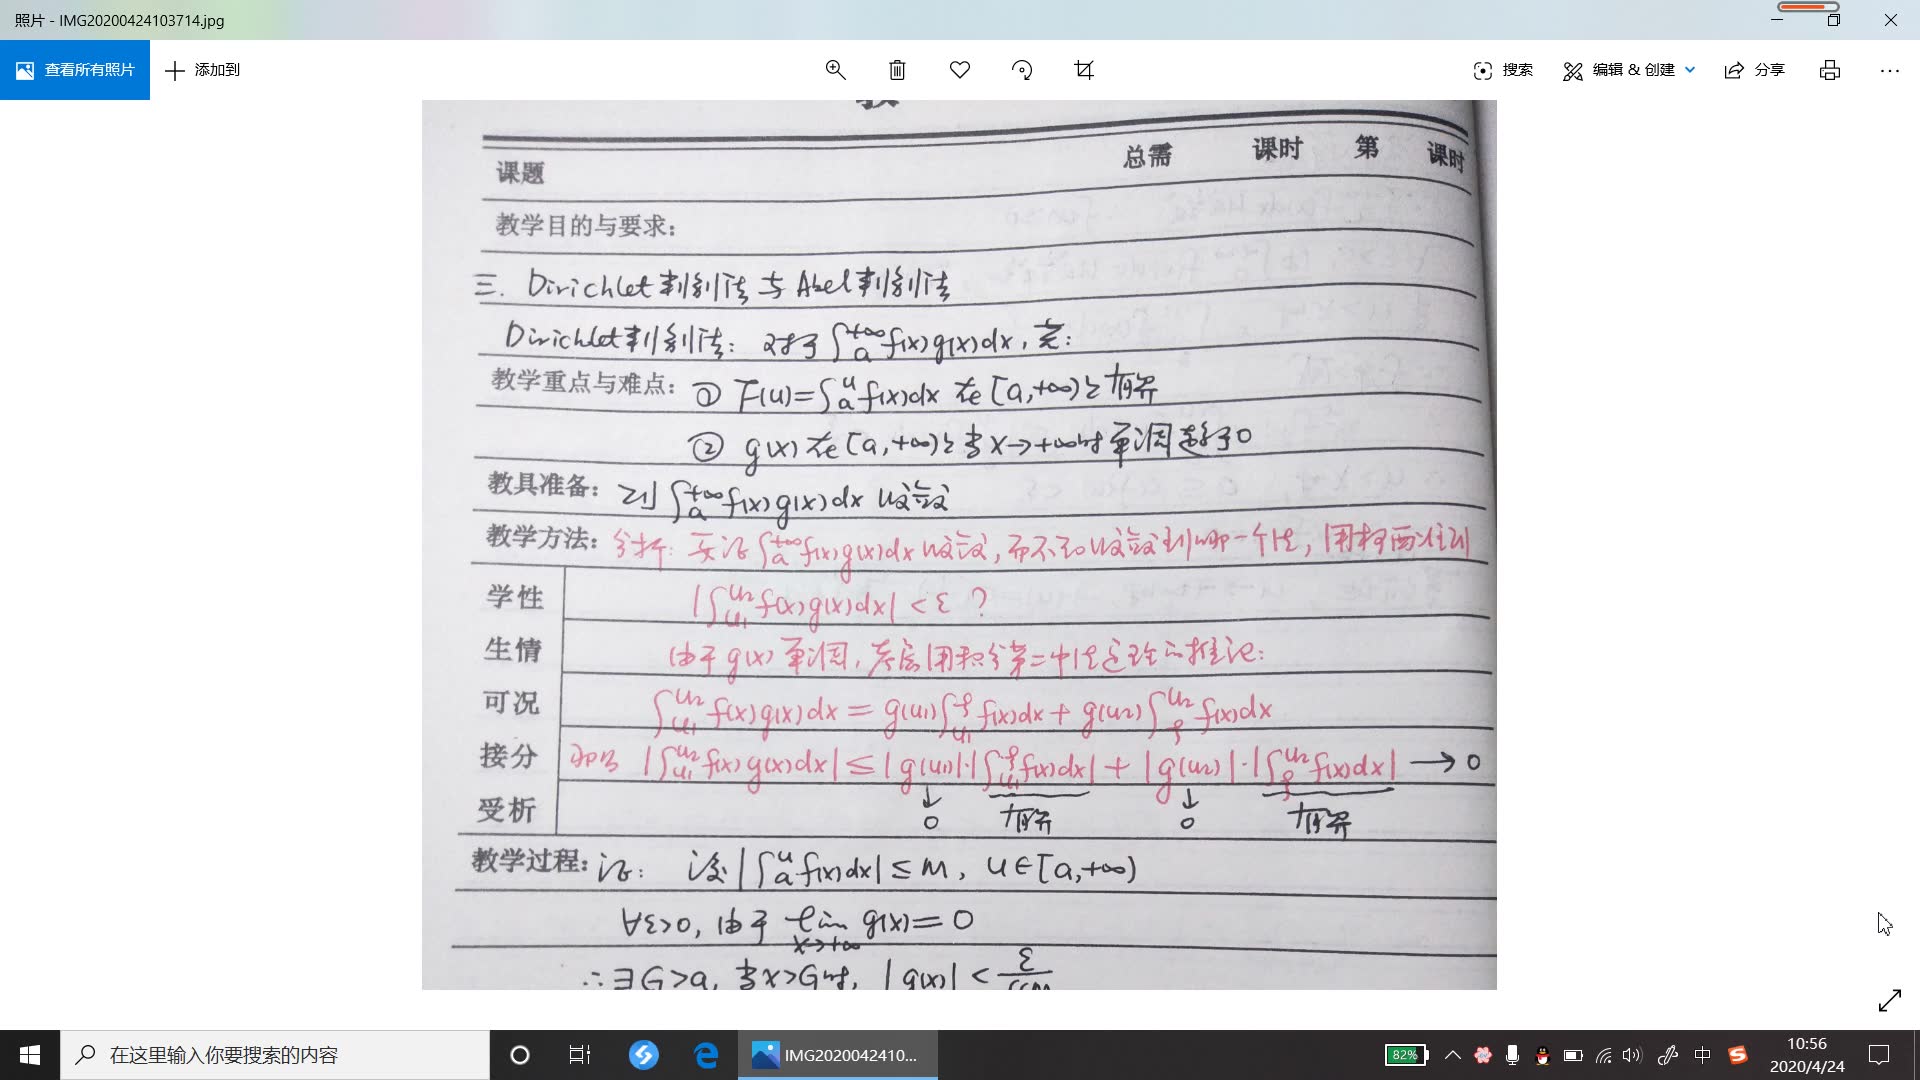 照片 - IMG20200424103714.jpg
查看所有照片
添加到
搜索
编辑 & 创建
分享
课题 总需 课时 第 课时
教学目的与要求:
三. Dirichlet判别法与Abel判别法
Dirichlet判别法: 对于∫ₐ⁺∞f(x)g(x)dx, 若:
教学重点与难点: ① F(u)=∫ₐᵘf(x)dx 在[a,+∞)上有界
② g(x)在[a,+∞)上当x→+∞时单调趋于0
教具准备: 则∫ₐ⁺∞f(x)g(x)dx 收敛
教学方法: 分析: 要证∫ₐ⁺∞f(x)g(x)dx收敛, 而不知收敛到哪一个值, 用柯西准则
学性 |∫_{u₁}^{u₂}f(x)g(x)dx|<ε ?
生情 由于g(x)单调, 考虑用积分第二中值定理的推论:
可况 ∫_{u₁}^{u₂}f(x)g(x)dx=g(u₁)∫_{u₁}^{ξ}f(x)dx+g(u₂)∫_{ξ}^{u₂}f(x)dx
接分 |∫_{u₁}^{u₂}f(x)g(x)dx|≤|g(u₁)|·|∫_{u₁}^{ξ}f(x)dx|+|g(u₂)|·|∫_{ξ}^{u₂}f(x)dx|→0
受析 ↓0 有界 ↓0 有界
教学过程: 证: 设|∫ₐᵘf(x)dx|≤M, u∈[a,+∞)
∀ε>0, 由于 lim_{x→+∞} g(x)=0
∴∃G>a, 当x>G时, |g(x)|<ε
在这里输入你要搜索的内容
IMG2020042410...
82%
中
10:56
2020/4/24